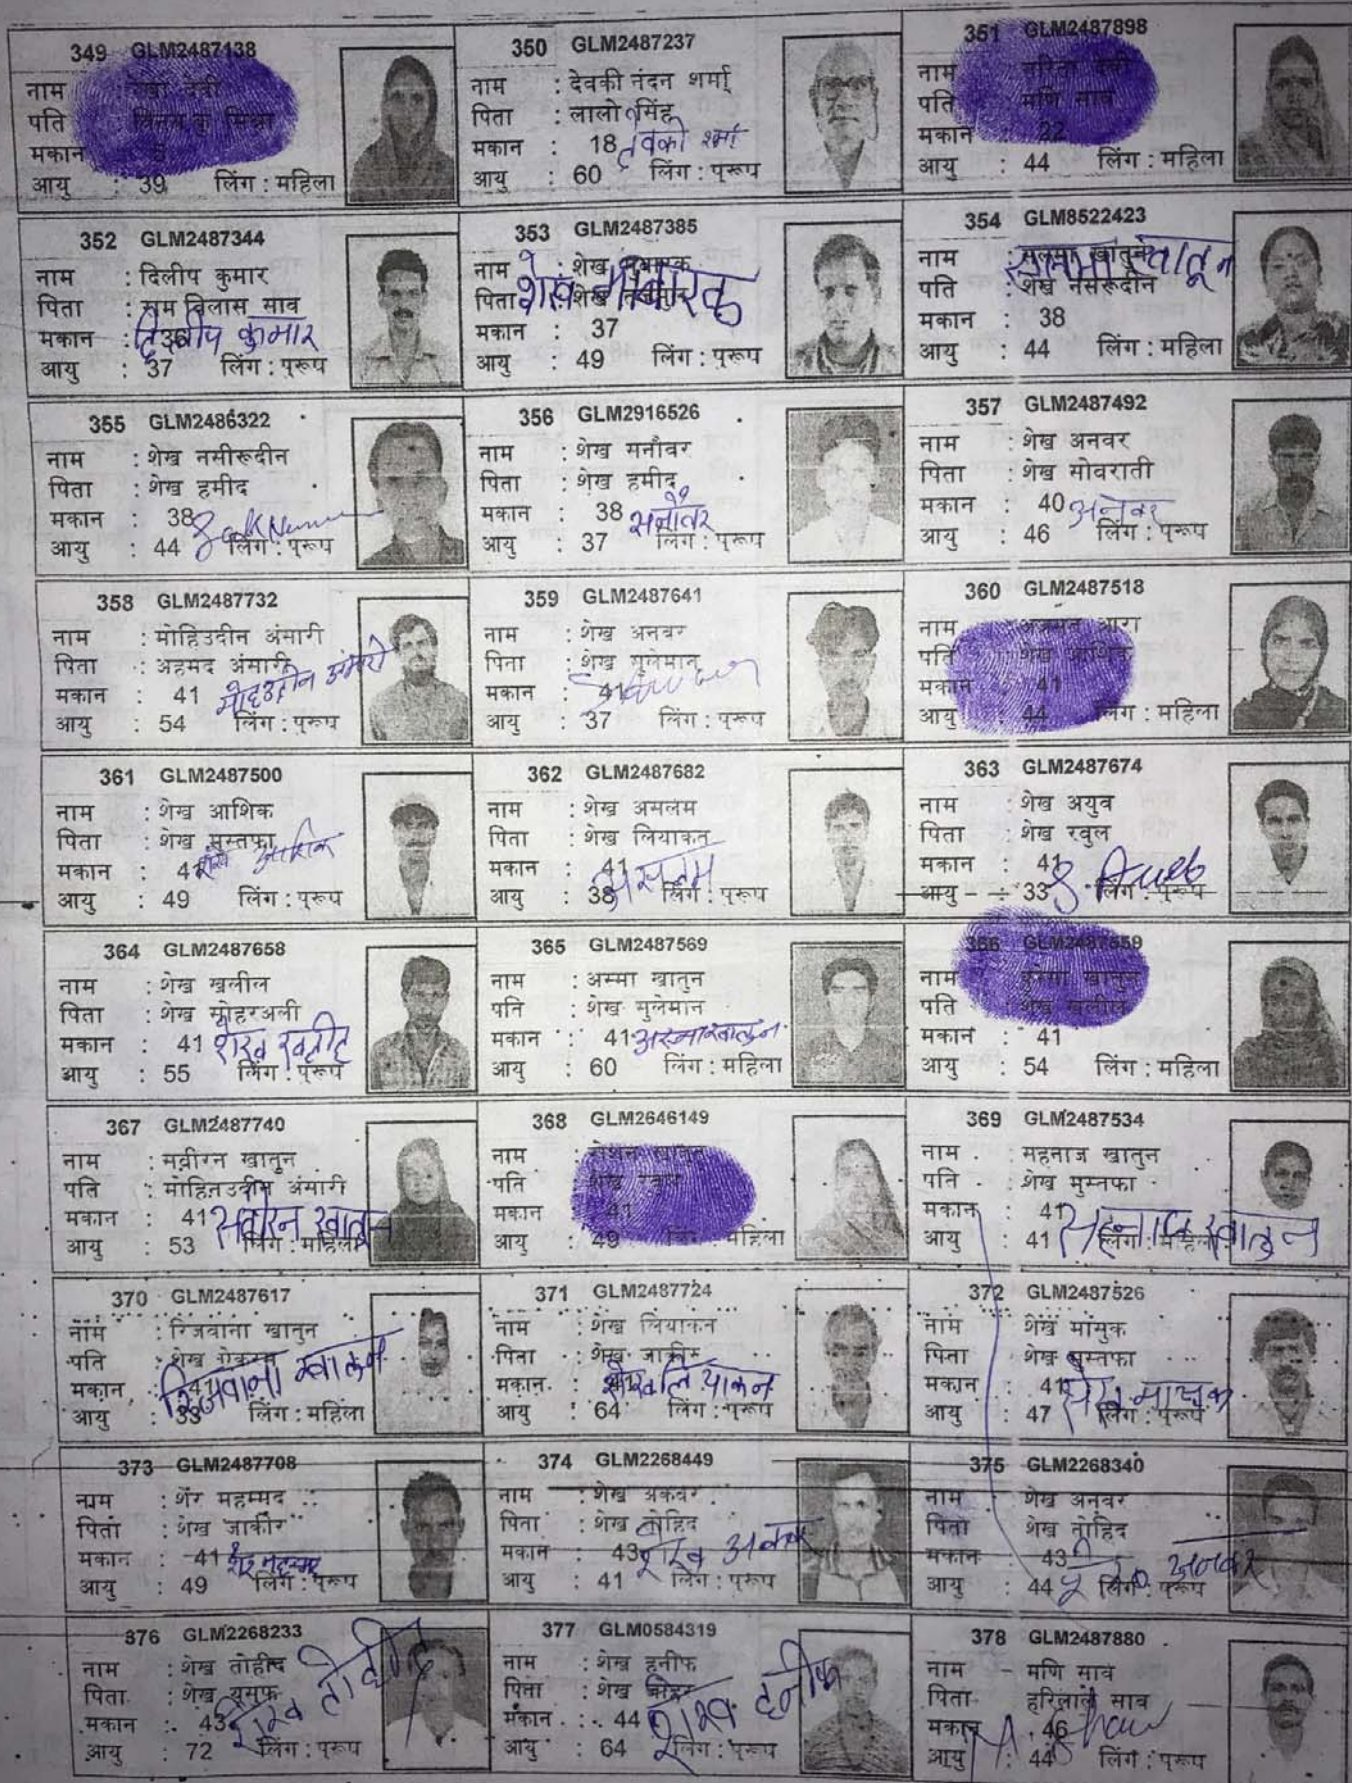 349 GLM2487138
नाम
पति
मकान
आयु : 39 लिंग : महिला
350 GLM2487237
नाम : देवकी नंदन शर्मा
पिता : लालो सिंह
मकान : 18
आयु : 60 लिंग : पुरूष
351 GLM2487898
नाम
पति : मणि साव
मकान : 22
आयु : 44 लिंग : महिला
352 GLM2487344
नाम : दिलीप कुमार
पिता : राम विलास साव
मकान : दिलीप कुमार
आयु : 37 लिंग : पुरूष
353 GLM2487385
नाम : शेख
पिता : शेख
मकान : 37
आयु : 49 लिंग : पुरूष
354 GLM8522423
नाम : सलमा खातुन
पति : शेख नसरूदीन
मकान : 38
आयु : 44 लिंग : महिला
355 GLM2486322
नाम : शेख नसीरूदीन
पिता : शेख हमीद
मकान : 38
आयु : 44 लिंग : पुरूष
356 GLM2916526
नाम : शेख मनौवर
पिता : शेख हमीद
मकान : 38
आयु : 37 लिंग : पुरूष
357 GLM2487492
नाम : शेख अनवर
पिता : शेख मोवराती
मकान : 40 अनवर
आयु : 46 लिंग : पुरूष
358 GLM2487732
नाम : मोहिउदीन अंसारी
पिता : अहमद अंसारी
मकान : 41
आयु : 54 लिंग : पुरूष
359 GLM2487641
नाम : शेख अनवर
पिता : शेख सुलेमान
मकान : 41
आयु : 37 लिंग : पुरूष
360 GLM2487518
नाम : आरा
पति : शेख आशिक
मकान : 41
आयु : 44 लिंग : महिला
361 GLM2487500
नाम : शेख आशिक
पिता : शेख मुस्तफा
मकान : 41 शेख आशिक
आयु : 49 लिंग : पुरूष
362 GLM2487682
नाम : शेख असलम
पिता : शेख लियाकत
मकान : 41 असलम
आयु : 38 लिंग : पुरूष
363 GLM2487674
नाम : शेख अयुब
पिता : शेख रवुल
मकान : 41
आयु : 33 लिंग : पुरूष
364 GLM2487658
नाम : शेख खलील
पिता : शेख मोहरअली
मकान : 41 शेख खलील
आयु : 55 लिंग : पुरूष
365 GLM2487569
नाम : अस्मा खातुन
पति : शेख सुलेमान
मकान : 41 अस्मा खातुन
आयु : 60 लिंग : महिला
366 GLM2487559
नाम : खातुन
पति : शेख खलील
मकान : 41
आयु : 54 लिंग : महिला
367 GLM2487740
नाम : सवीरन खातुन
पति : मोहिनउदीन अंसारी
मकान : 41
आयु : 53 लिंग : महिला
368 GLM2646149
नाम : रोशन खातुन
पति : शेख
मकान : 41
आयु : 49 लिंग : महिला
369 GLM2487534
नाम : महनाज खातुन
पति : शेख मुस्तफा
मकान : 41
आयु : 41 लिंग : महिला
370 GLM2487617
नाम : रिजवाना खातुन
पति : शेख
मकान : 41
आयु : 33 लिंग : महिला
371 GLM2487724
नाम : शेख लियाकत
पिता : शेख जाकीर
मकान : शेख लियाकत
आयु : 64 लिंग : पुरूष
372 GLM2487526
नाम : शेख मासुक
पिता : शेख मुस्तफा
मकान : 41
आयु : 47 लिंग : पुरूष
373 GLM2487708
नाम : शेर महम्मद
पिता : शेख जाकीर
मकान : 41
आयु : 49 लिंग : पुरूष
374 GLM2268449
नाम : शेख अकबर
पिता : शेख तोहिद
मकान : 43 शेख अकबर
आयु : 41 लिंग : पुरूष
375 GLM2268340
नाम : शेख अनवर
पिता : शेख तोहिद
मकान : 43 अनवर
आयु : 44 लिंग : पुरूष
376 GLM2268233
नाम : शेख तोहीद
पिता : शेख युसुफ
मकान : 43 शेख तोहीद
आयु : 72 लिंग : पुरूष
377 GLM0584319
नाम : शेख हनीफ
पिता : शेख
मकान : 44 शेख हनीफ
आयु : 64 लिंग : पुरूष
378 GLM2487880
नाम : मणि साव
पिता : हरिलाल साव
मकान : 46
आयु : 44 लिंग : पुरूष